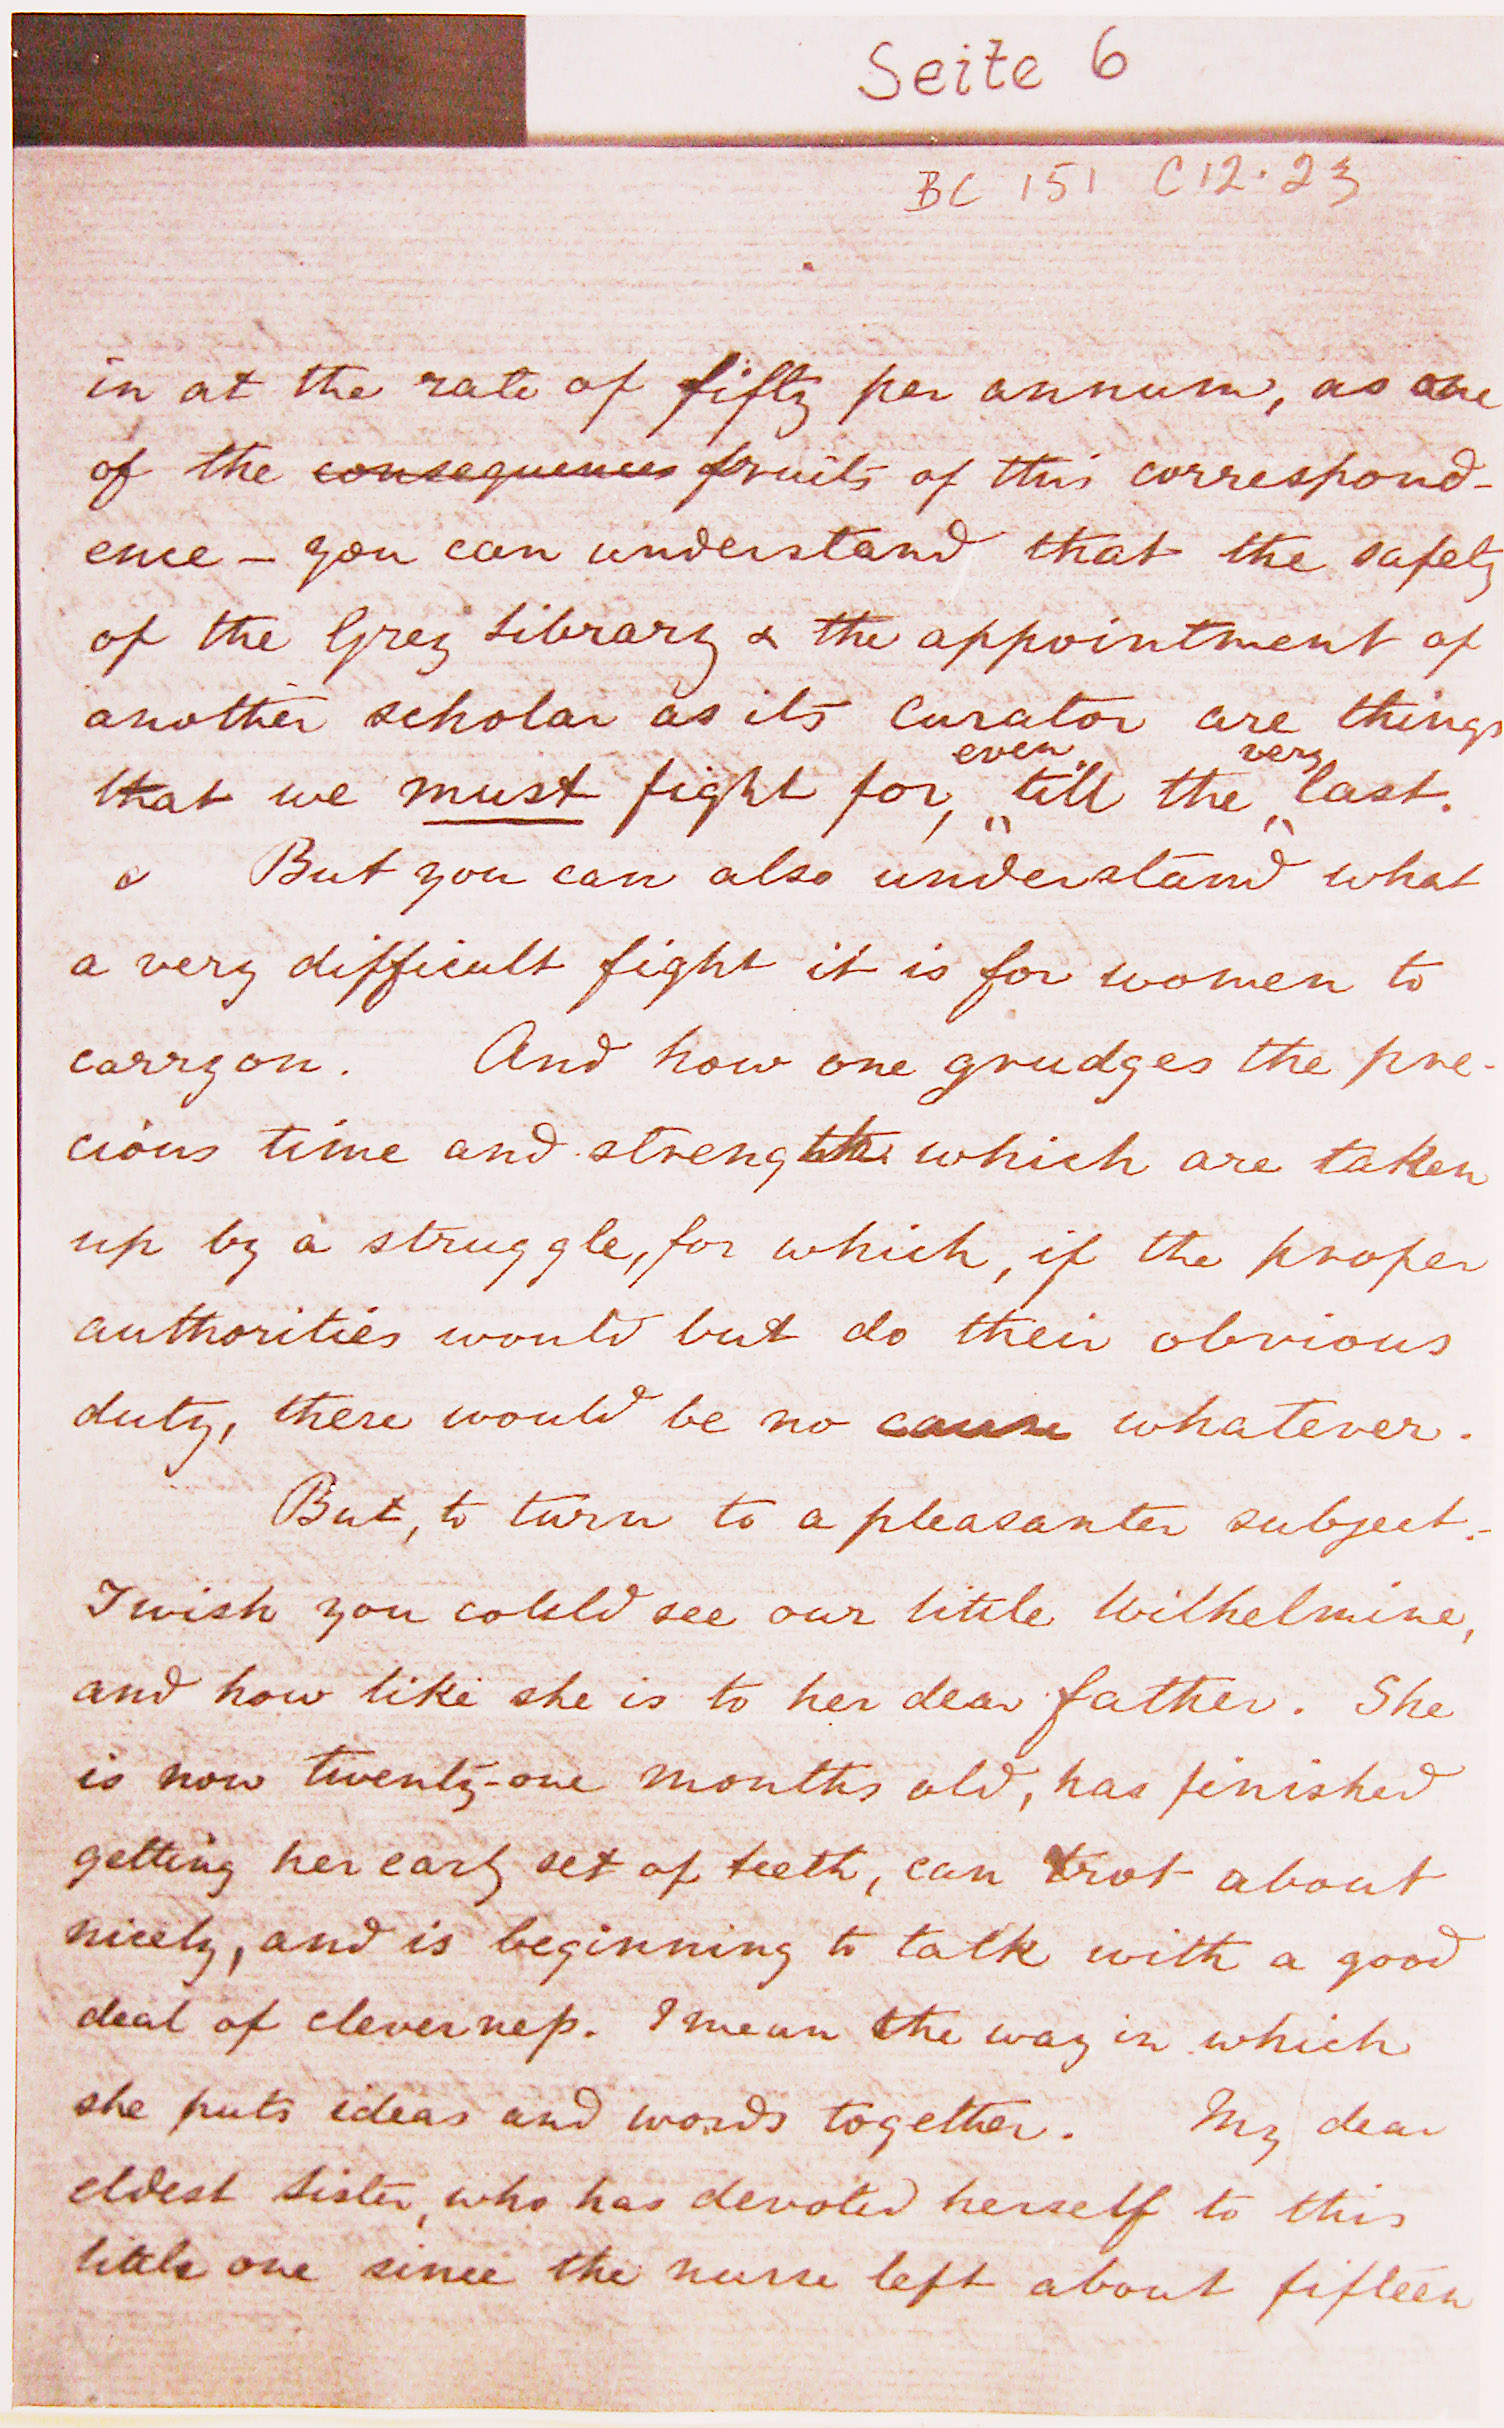 Seite 6
BC 151 C12.23
in at the rate of fifty per annum, as one
of the consequences fruits of this correspond-
ence – you can understand that the safety
of the Grey Library & the appointment of
another scholar as its Curator are things
even very
that we must fight for, till the last.
But you can also understand what
a very difficult fight it is for women to
carry on. And how one grudges the pre-
cious time and strength which are taken
up by a struggle, for which, if the proper
authorities would but do their obvious
duty, there would be no cause whatever.
But, to turn to a pleasanter subject. –
I wish you could see our little Wilhelmine,
and how like she is to her dear father. She
is now twenty-one months old, has finished
getting her early set of teeth, can trot about
nicely, and is beginning to talk with a good
deal of cleverness. I mean the way in which
she puts ideas and words together. My dear
eldest sister, who has devoted herself to this
little one since the nurse left about fifteen